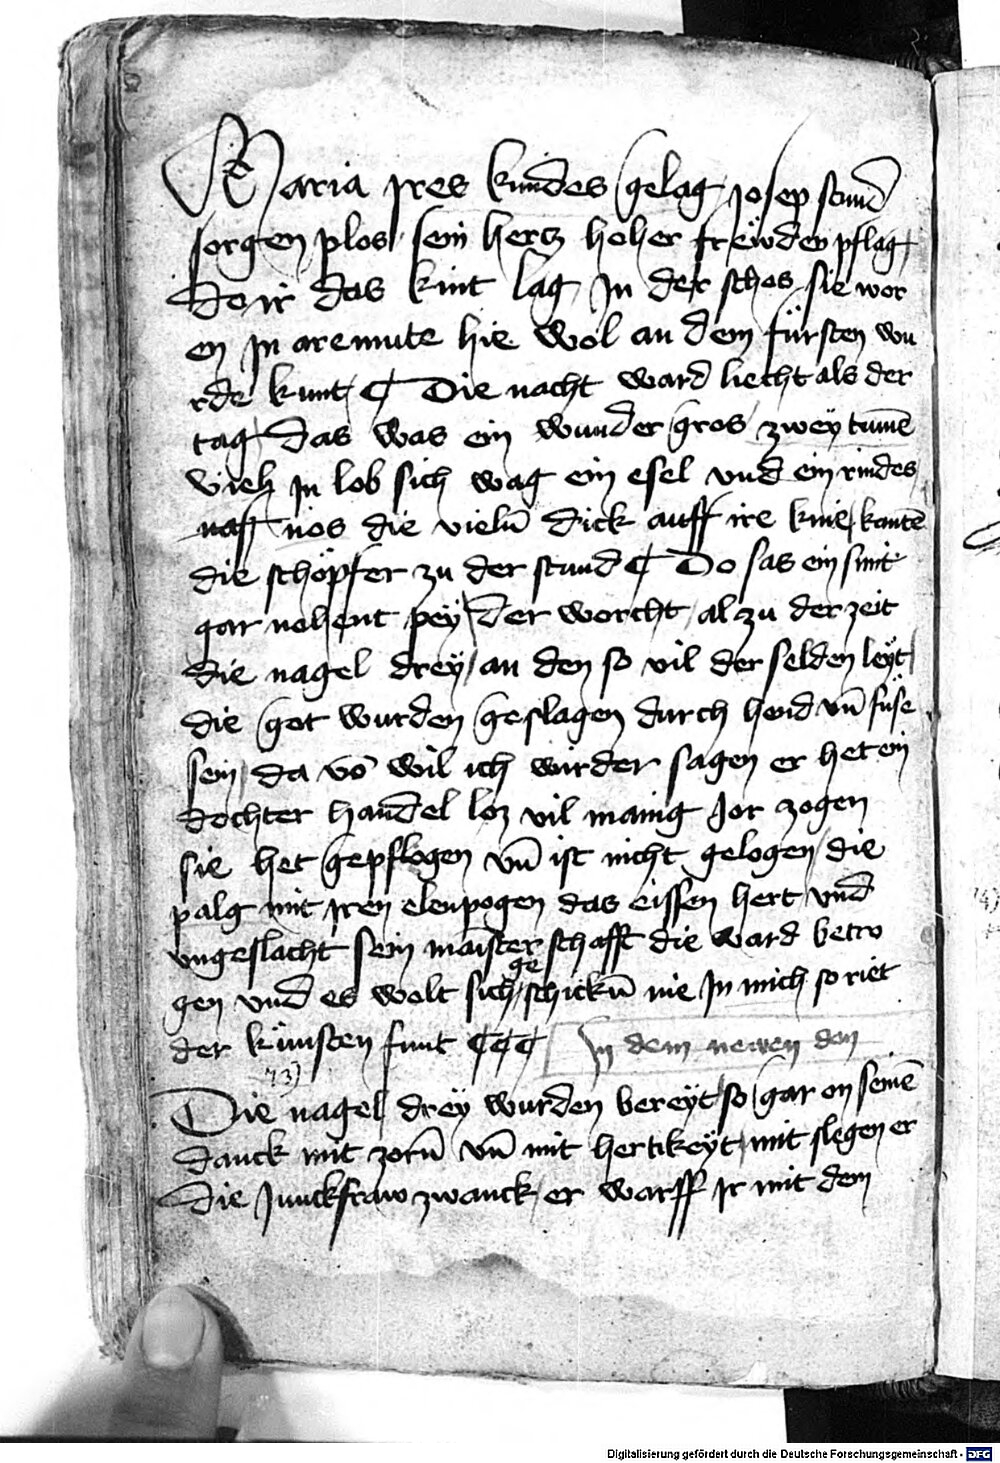 Maria ires kindes gelag / josep stund
sorgen plos / sein hertz hoher frewden pflag /
do ir das kint lag / In der schos / sie wor
en In aremute hie wol an dem fürsten wu
rde kunt / ¶ Die nacht ward liecht als der
tag / das was ein wunder gros / zwey tum̄e
vieh In lob sich wag ein esel vnd ein rindes
nos die vieln̄ dick auff ire knie / kanten̄
die schöpfer zu der stund ¶ Do sas ein smit
gar nohent pey / der worcht / al zu der zeit
die nagel drey / an den so vil der selden leyt /
die got wurden geslagen durch hend vn̄ füse
sein / da vō wil ich wirder sagen er het ein
dochter handel loz vil manig Jor zogen
sie het gepflogen vn̄ ist nicht gelogen / die
palg mit iren elenpogen das eissen hert vnd
vngeslacht sein maisterschafft die ward betro
gen vnd es wolt sich geschickn̄ nie In mich so riet
der künsten funt ¶¶¶ In dem newen don
73)
Die nagel drey wurden bereyt / so gar on seinē
danck mit zorn̄ vn̄ mit hertikeyt / mit slegen er
die Junckfraw zwanck / er warff ir mit dem
Digitalisierung gefördert durch die Deutsche Forschungsgemeinschaft - DFG